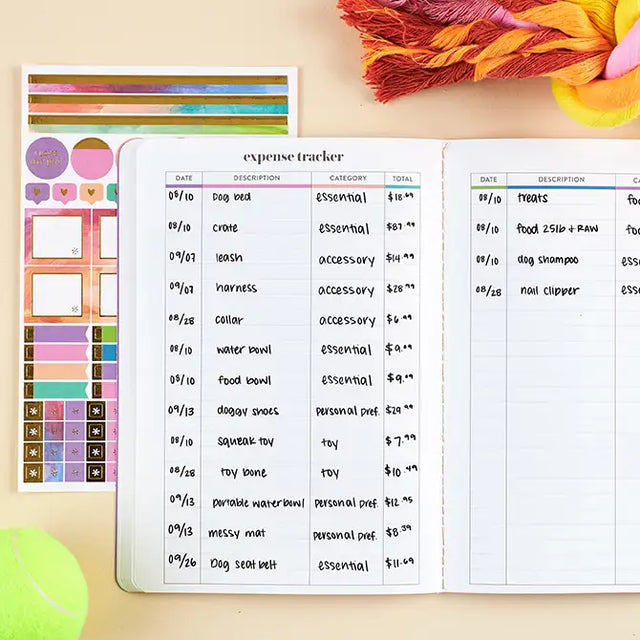 expense tracker
DATE DESCRIPTION CATEGORY TOTAL
08/10 Dog bed essential
08/10 crate essential $87.99
09/07 leash accessory $14.99
09/07 harness accessory $28.99
08/28 collar accessory $6.99
08/10 water bowl essential $9.99
08/10 food bowl essential $9.99
09/13 doggy shoes personal pref. $29.99
08/10 squeak toy toy $7.99
08/28 toy bone toy $10.49
09/13 portable waterbowl personal pref. $12.95
09/13 messy mat personal pref. $8.39
09/26 Dog seat belt essential $11.69
DATE DESCRIPTION CA
08/10 treats foo
08/10 food 25lb + RAW foo
08/10 dog shampoo esse
08/28 nail clipper esse